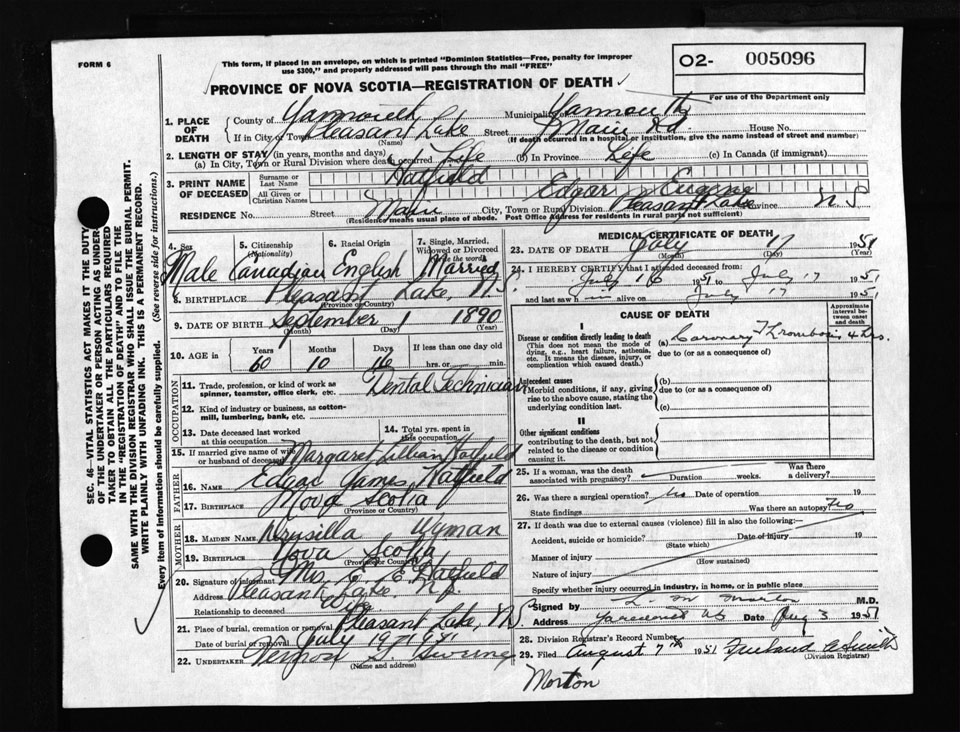 FORM 6
This form, if placed in an envelope, on which is printed "Dominion Statistics—Free, penalty for improper
use $300," and properly addressed will pass through the mail "FREE"
02- 005096
For use of the Department only
PROVINCE OF NOVA SCOTIA—REGISTRATION OF DEATH
1. PLACE OF DEATH
County of Yarmouth Municipality Yarmouth
If in City or Town Pleasant Lake Street Main Rd House No.
(Name) (If death occurred in a hospital or institution, give the name instead of street and number)
2. LENGTH OF STAY (in years, months and days)
(a) In City, Town or Rural Division where death occurred Life (b) In Province Life (c) In Canada (if immigrant)
3. PRINT NAME OF DECEASED
Surname or Last Name Hatfield
All Given or Christian Names Edgar Eugene
RESIDENCE No. Street Main City, Town or Rural Division Pleasant Lake Province N S
(Residence means usual place of abode. Post Office Address for residents in rural parts not sufficient)
4. Sex Male
5. Citizenship (Nationality) Canadian
6. Racial Origin English
7. Single, Married, Widowed or Divorced Married
8. BIRTHPLACE Pleasant Lake, N.S.
(Province or Country)
9. DATE OF BIRTH September 1 1890
(Month) (Day) (Year)
10. AGE in Years 60 Months 10 Days 16 If less than one day hrs. or min.
OCCUPATION
11. Trade, profession, or kind of work as spinner, teamster, office clerk, etc. Dental Technician
12. Kind of industry or business, as cotton-mill, lumbering, bank, etc.
13. Date deceased last worked at this occupation
14. Total yrs. spent in this occupation
15. If married give name of wife or husband of deceased Margaret Lillian Hatfield
FATHER
16. NAME Edgar James Hatfield
17. BIRTHPLACE Nova Scotia
(Province or Country)
MOTHER
18. MAIDEN NAME Drusilla Wyman
19. BIRTHPLACE Nova Scotia
(Province or Country)
20. Signature of informant Mrs. E. E. Hatfield
Address Pleasant Lake. N.S.
Relationship to deceased Wife
21. Place of burial, cremation or removal Pleasant Lake, N.S.
Date of burial or removal July 19
22. UNDERTAKER Sweeny
(Name and address)
MEDICAL CERTIFICATE OF DEATH
23. DATE OF DEATH July 17 1951
(Month) (Day)
24. I HEREBY CERTIFY that I attended deceased from:
July 16 1951 to July 17 1951
and last saw h im alive on July 17 1951
CAUSE OF DEATH
Approximate interval between onset and death
I
Disease or condition directly leading to death
(This does not mean the mode of dying, e.g., heart failure, asthenia, etc. It means the disease, injury, or complication which caused death.)
(a) Coronary Thrombosis 4 hrs.
due to (or as a consequence of)
Antecedent causes
Morbid conditions, if any, giving rise to the above cause, stating the underlying condition last.
(b)
due to (or as a consequence of)
(c)
II
Other significant conditions
contributing to the death, but not related to the disease or condition causing it.
25. If a woman, was the death associated with pregnancy? Duration weeks. Was there a delivery?
26. Was there a surgical operation? No Date of operation 19
State findings Was there an autopsy? No
27. If death was due to external causes (violence) fill in also the following:—
Accident, suicide or homicide? Date of injury 19
(State which)
Manner of injury
(How sustained)
Nature of injury
Specify whether injury occurred in industry, in home, or in public place
Signed by L. M. Morton M.D.
Address Date Aug 3 1951
28. Division Registrar's Record Number
29. Filed August 7th 1951 Smith
(Division Registrar)
Morton
SEC. 46—VITAL STATISTICS ACT MAKES IT THE DUTY
OF THE UNDERTAKER OR PERSON ACTING AS UNDERTAKER TO OBTAIN ALL THE PARTICULARS REQUIRED
IN THE "REGISTRATION OF DEATH" AND TO FILE THE
SAME WITH THE DIVISION REGISTRAR WHO SHALL ISSUE THE BURIAL PERMIT.
WRITE PLAINLY WITH UNFADING INK. THIS IS A PERMANENT RECORD.
Every item of information should be carefully supplied. (See reverse side for instructions.)